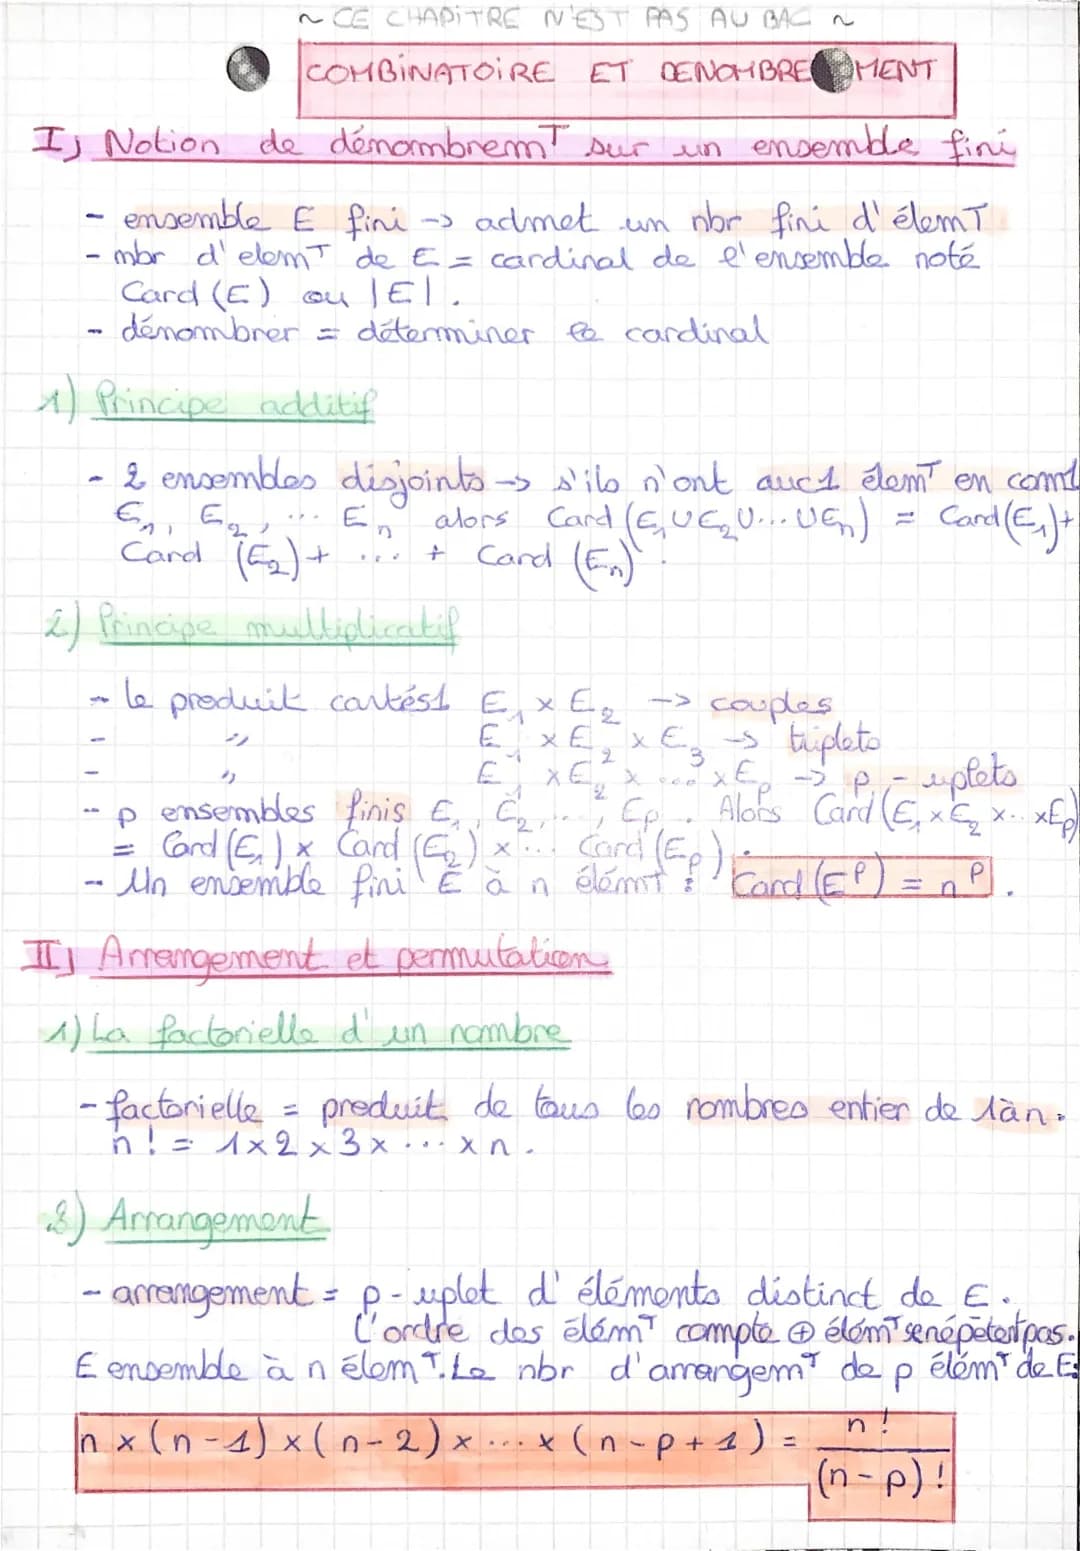 ~ CE CHAPITRE N'EST PAS AU BAC ~
COMBINATOIRE ET DENOMBREMENT
I) Notion de dénombrem^T sur un ensemble fini
- ensemble E fini -> admet un nbr fini d'élem^T
- nbr d'elem^T de E = cardinal de l'ensemble noté
Card (E) ou |E|.
- dénombrer = déterminer le cardinal
1) Principe additif
- 2 ensembles disjoints -> s'ils n'ont auc1 élem^T en com1
E₁, E₂, ... Eₙ alors Card (E₁∪E₂∪...∪Eₙ) = Card(E₁)+
Card (E₂)+ ... + Card (Eₙ).
2) Principe multiplicatif
- le produit cartés1 E₁ × E₂ -> couples
- " E₁ × E₂ × E₃ -> triplets
- " E₁ × E₂ × ... × Eₚ -> p - uplets
- p ensembles finis E₁, E₂,..., Eₚ. Alors Card (E₁ × E₂ ×.. ×Eₚ)
= Card (E₁) × Card (E₂) ×... Card (Eₚ).
- Un ensemble fini E à n élémt : Card (Eᵖ) = nᵖ.
II) Arrangement et permutation
1) La factorielle d'un nombre
- factorielle = produit de tous les nombres entier de 1àn.
n! = 1×2×3×...×n.
3) Arrangement
- arrangement = p-uplet d'éléments distinct de E.
L'ordre des élém^T compte ⊕ élém^T se répètent pas.
E ensemble à n élem^T. Le nbr d'arrangem^T de p élém^T de E:
n × (n-1) × (n-2) × ... × (n-p+1) = n! / (n-p)!